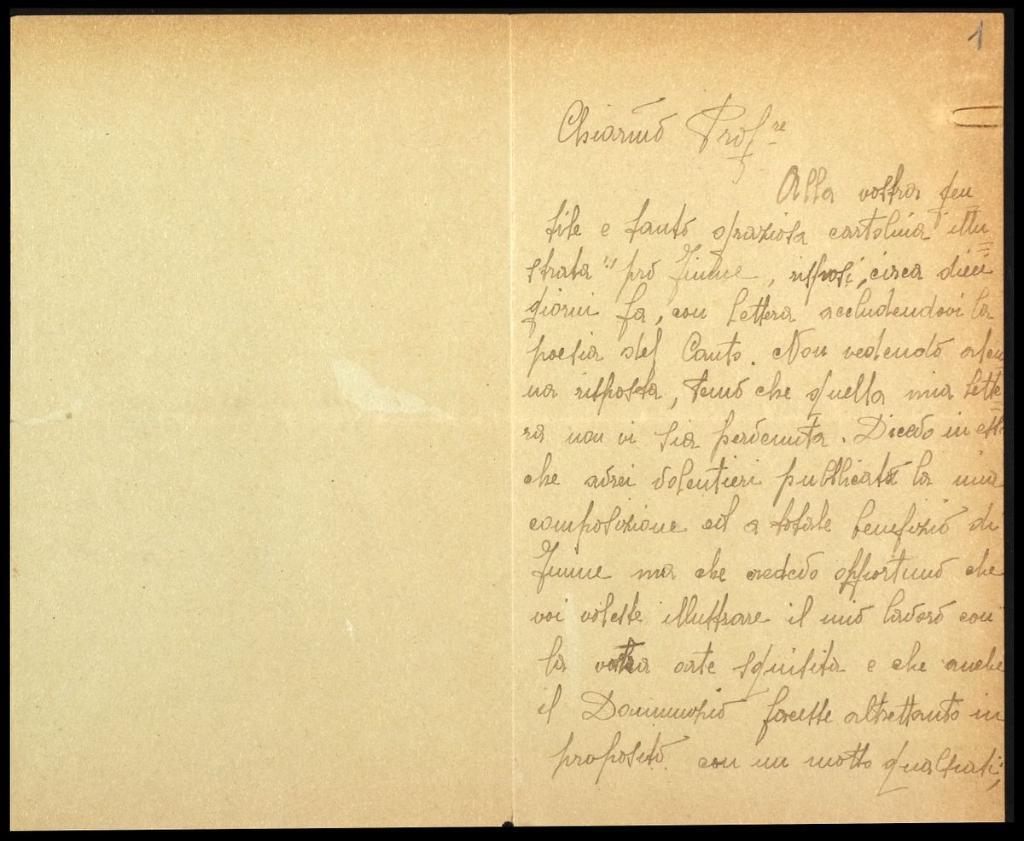 1
Chiarmo Prof.re
Alla vostra gen
tile e tanto graziosa cartolina illu
strata "pro Fiume, risposi, circa dieci
giorni fa, con lettera accludendovi la
poesia del Canto. Non vedendo alcu
na risposta, temo che quella mia lette
ra non vi sia pervenuta. Dicevo in essa
che avrei volentieri pubblicato la mia
composizione ed a totale benefizio di
Fiume ma che credevo opportuno che
voi voleste illustrare il mio lavoro con
la vostra arte squisita e che anche
il Dannunzio facesse altrettanto in
proposito con un motto qualsiasi,